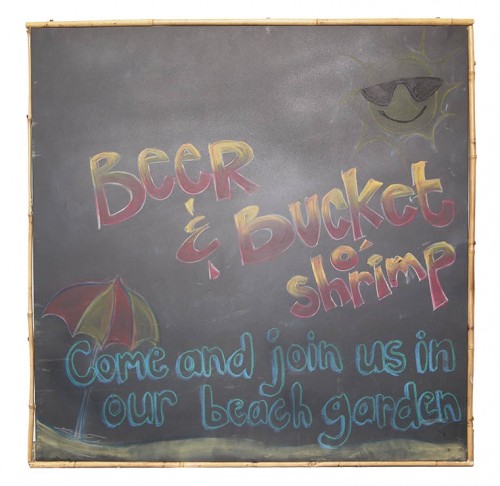 Beer
& Bucket
o'
shrimp
Come and join us in
our beach garden